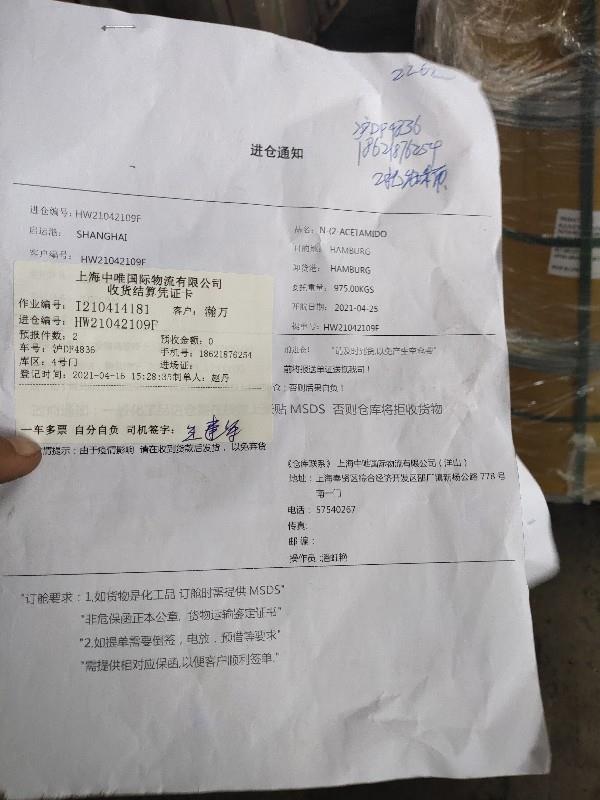 沪DF4836
18621876254
进仓通知
进仓编号: HW21042109F
启运港: SHANGHAI
客户编号: HW21042109F
品名: N-(2-ACETAMIDO
目的地: HAMBURG
卸货港: HAMBURG
委托重量: 975.00KGS
开航日期: 2021-04-25
提单号: HW21042109F
上海中唯国际物流有限公司
收货结算凭证卡
作业编号: I210414181 客户: 瀚万
进仓编号: HW21042109F
预报件数: 2 预收金额: 0
车号: 沪DF4836 手机号: 18621876254
库区: 4号门 进场证:
登记时间: 2021-04-16 15:28:35制单人: 赵丹
一车多票 自分自负 司机签字:
前将报送单证送抵我司!
否则后果自负!
贴 MSDS 否则仓库将拒收货物
情提示: 由于疫情影响 请在收到货款后发货, 以免弃货
《仓库联系》 上海中唯国际物流有限公司 (洋山)
地址: 上海奉贤区综合经济开发区邵厂镇新杨公路 778 号
南一门
电话: 57540267
传真:
邮编:
操作员:
"订舱要求: 1.如货物是化工品 订舱时需提供 MSDS"
"非危保函正本公章, 货物运输鉴定证书"
"2.如提单需要倒签, 电放, 预借等要求"
"需提供相对应保函,以便客户顺利签单."